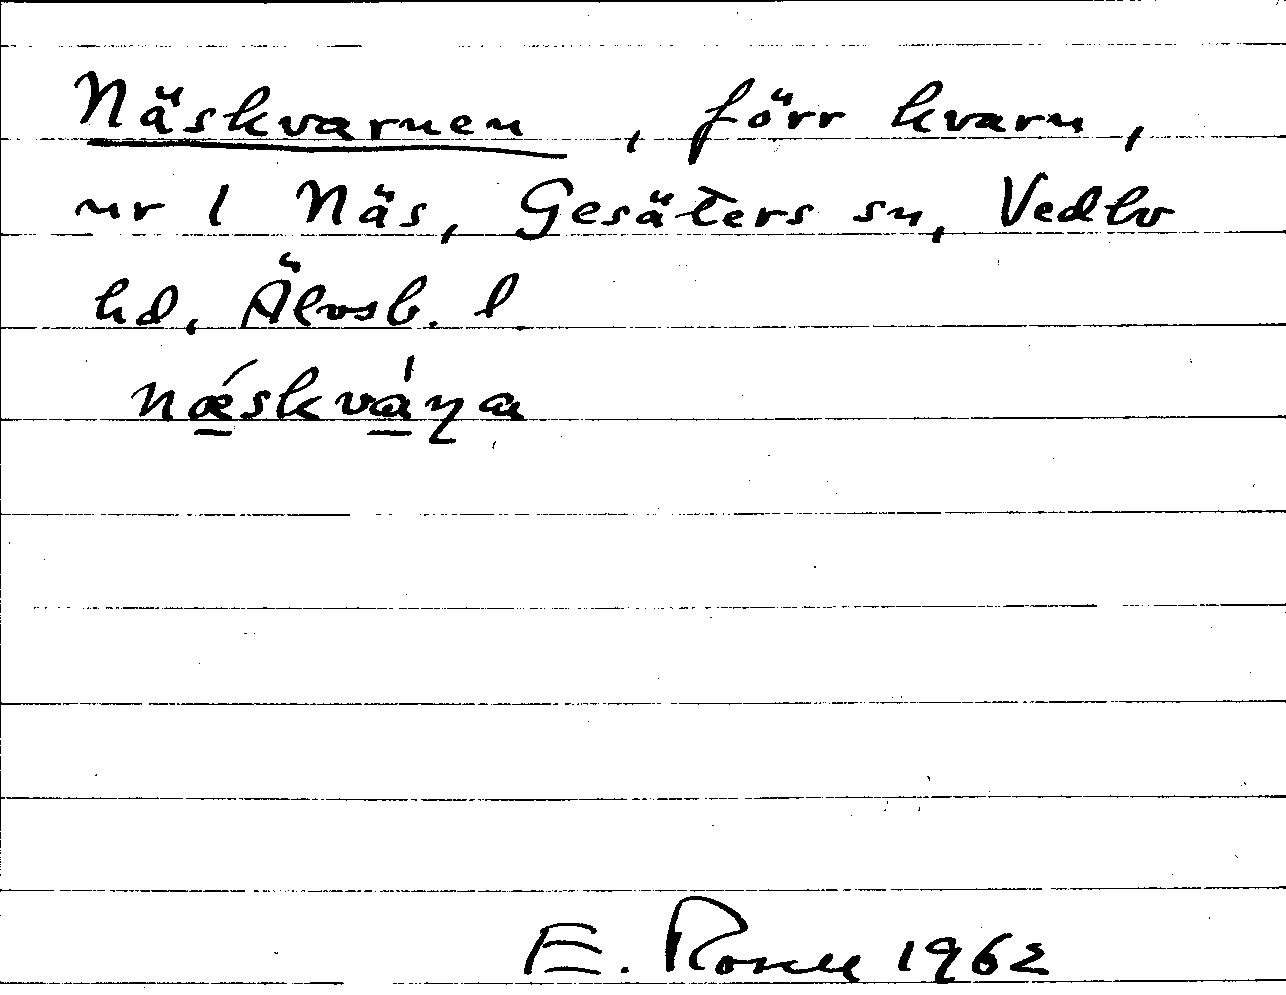 Näskvarnen, förr kvarn,
nr 1 Näs, Gesäters sn, Vedbo
hd, Älvsb. l
nǽ̱skvà̱ɳa
E. 1962